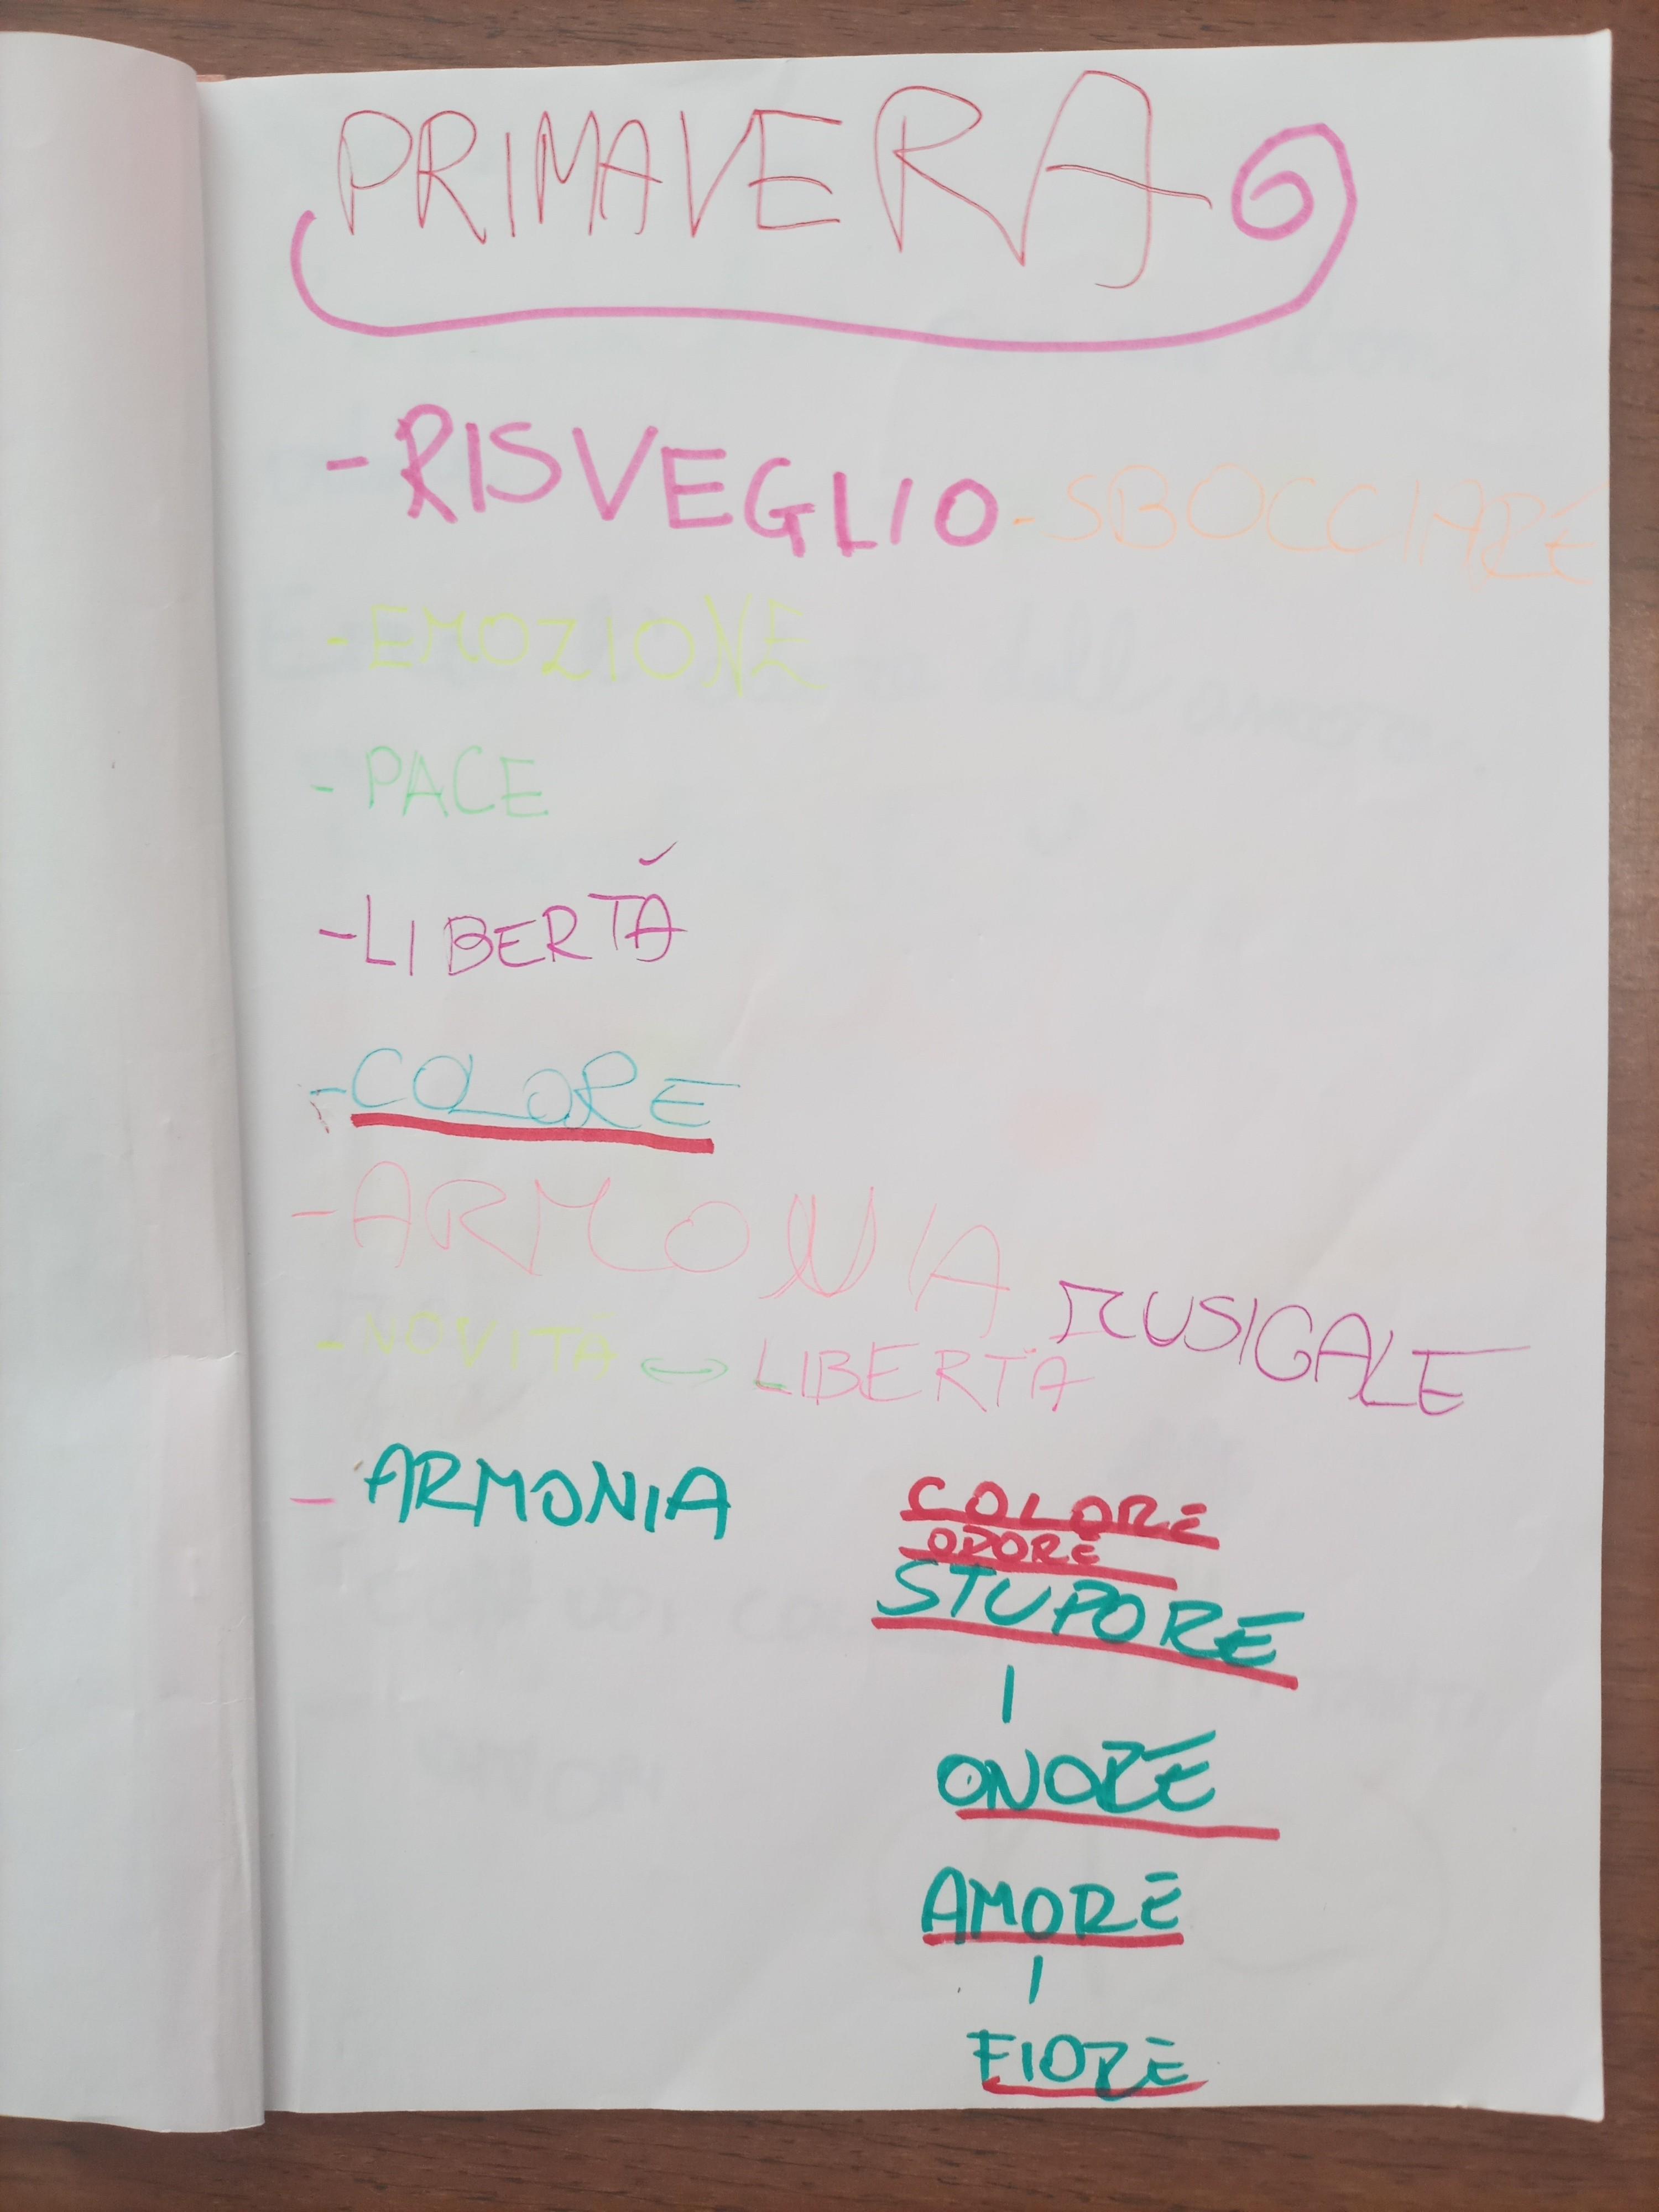 PRIMAVERA
- RISVEGLIO - SBOCCIARE
- EMOZIONE
- PACE
- LIBERTÀ
- COLORE
- ARMONIA MUSICALE
- NOVITÀ ↔ LIBERTÀ
- ARMONIA
COLORE
ODORE
STUPORE
ONORE
AMORE
FIORE